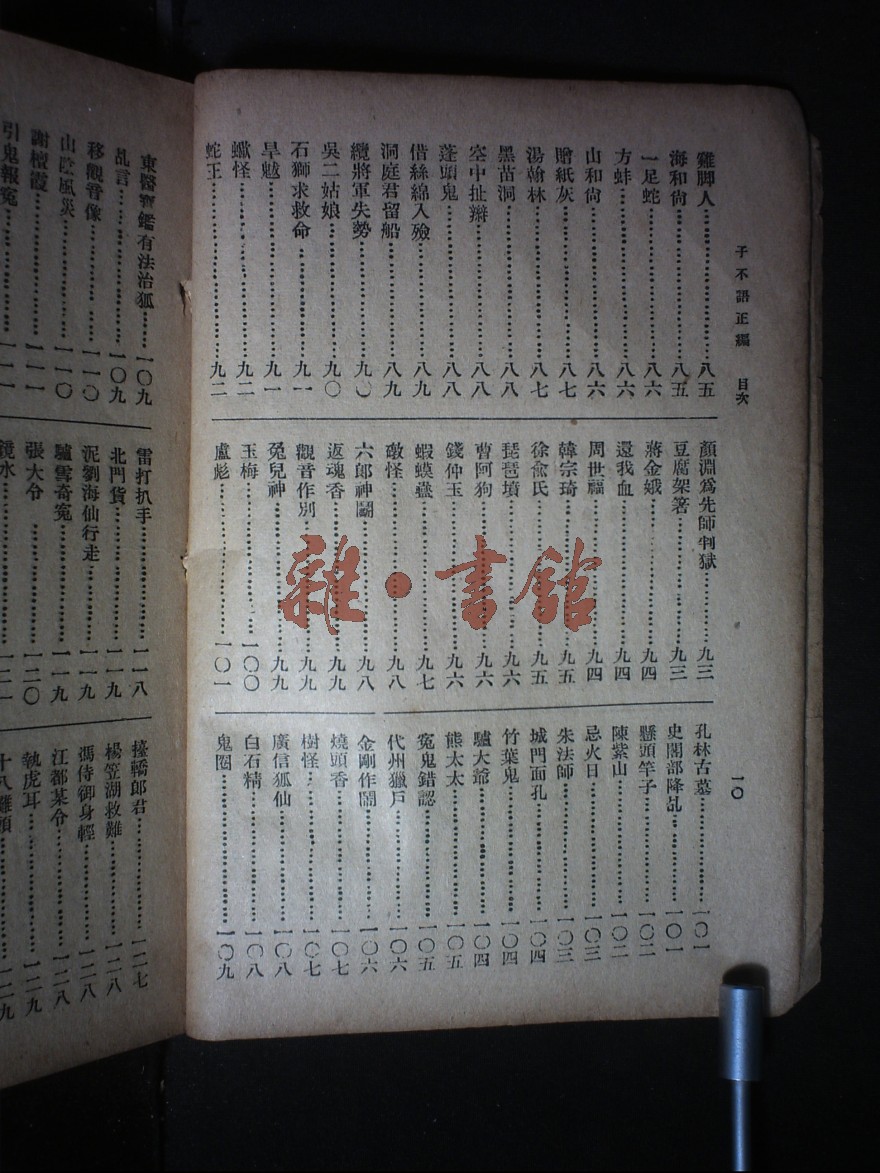 子不語正編 目次
一〇
雞脚人…………八五
海和尙…………八五
一足蛇…………八六
方蚌…………八六
山和尙…………八六
贈紙灰…………八七
湯翰林…………八七
黑苗洞…………八八
空中扯辮…………八八
蓬頭鬼…………八八
借絲綿入殮…………八九
洞庭君留船…………八九
纜將軍失勢…………九〇
吳二姑娘…………九〇
石獅求救命…………九一
旱魃…………九一
蠍怪…………九二
蛇王…………九二
顏淵爲先師判獄…………九三
豆腐架箸…………九三
蔣金娥…………九四
還我血…………九四
周世福…………九四
韓宗琦…………九五
徐兪氏…………九五
琵琶墳…………九六
曹阿狗…………九六
錢仲玉…………九六
蝦蟆蠱…………九七
礅怪…………九八
六郎神鬭…………九八
返魂香…………九九
觀音作別…………九九
兔兒神…………九九
玉梅…………一〇〇
盧彪…………一〇一
孔林古墓…………一〇一
史閣部降乩…………一〇一
懸頭竿子…………一〇二
陳紫山…………一〇二
忌火日…………一〇三
朱法師…………一〇三
城門面孔…………一〇四
竹葉鬼…………一〇四
驢大爺…………一〇四
熊太太…………一〇五
冤鬼錯認…………一〇五
代州獵戶…………一〇六
金剛作鬧…………一〇六
燒頭香…………一〇七
樹怪…………一〇七
廣信狐仙…………一〇八
白石精…………一〇八
鬼圈…………一〇九
東醫寶鑑有法治狐…………一〇九
乩言…………一〇九
移觀音像…………一一〇
山陰風災…………一一〇
謝檀霞…………一一一
引鬼報冤…………一一一
雷打扒手…………一一八
北門貨…………一一九
泥劉海仙行走…………一一九
驢雪奇冤…………一一九
張大令…………一二〇
鏡水…………一二一
擡轎郎君…………一二七
楊笠湖救難…………一二八
馮侍御身輕…………一二八
江都某令…………一二八
執虎耳…………一二九
十八灘頭…………一二九
雜·書館